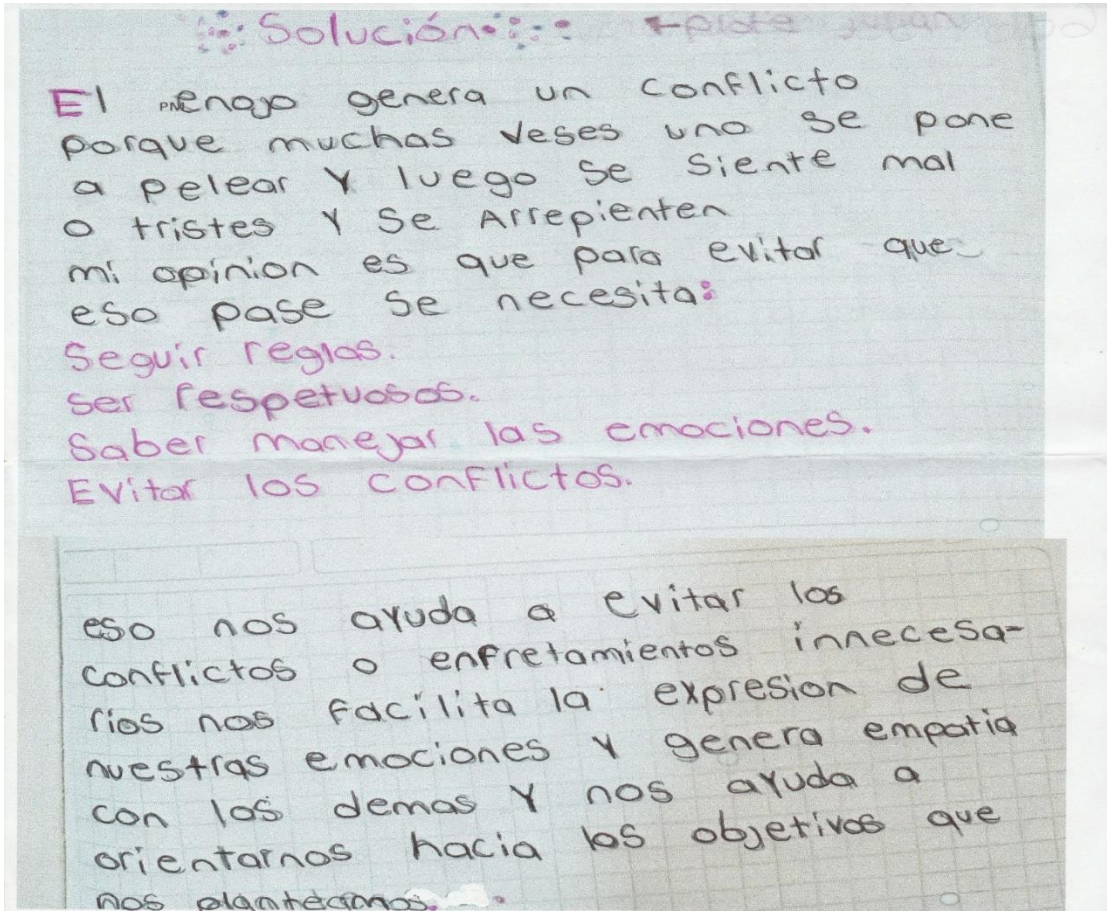 Solución
El enojo genera un conflicto
porque muchas veses uno se pone
a pelear y luego se siente mal
o tristes y se Arrepienten
mi opinion es que para evitar que
eso pase se necesita:
Seguir reglas.
Ser respetuosos.
Saber manejar las emociones.
Evitar los conflictos.
eso nos ayuda a evitar los
conflictos o enfretamientos innecesa-
rios nos facilita la expresion de
nuestras emociones y genera empatia
con los demas y nos ayuda a
orientarnos hacia los objetivos que
nos planteamos.